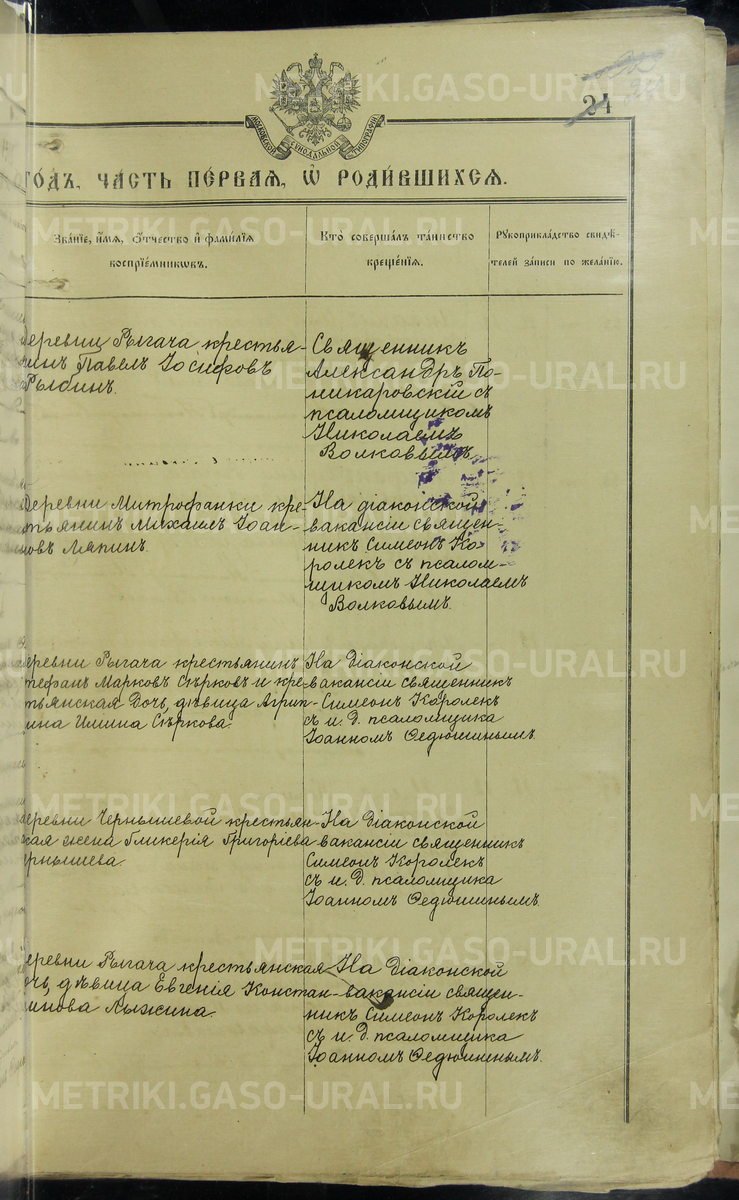 24
МОСКОВСКОЙ СѴНОДАЛЬНОЙ ТИПОГРАФІИ
ГОДЪ, ЧАСТЬ ПЕ́РВАЯ, Ѡ҆ РОДИ́ВШИХСЯ.
Зва́нїе, и҆́мя, ѻ҆́тчество и҆ фами́лїя
воспрїе́мникѡвъ.
Кто̀ соверша́лъ та́инство
креще́нїя.
Рꙋкоприкла́дство свидѣ́-
телей за́писи по жела́нїю.
деревни Рыгача крестья-
нинъ Павелъ Іосифовъ
Рыбинъ.
Священникъ
Александръ По-
никаровскій съ
псаломщикомъ
Николаемъ
Волковымъ.
Деревни Митрофанки кре-
стьянинъ Михаилъ Іоан-
новъ Ляпинъ.
На діаконской
вакансіи священ-
никъ Симеонъ Ко-
ролекъ съ псалом-
щикомъ Николаемъ
Волковымъ.
деревни Рыгача крестьянинъ
Стефанъ Марковъ Сѣрковъ и кре-
стьянская дочь, дѣвица Агрип-
пина Сѣркова.
На діаконской
вакансіи священникъ
Симеонъ Королекъ
съ и. д. псаломщика
Іоанномъ Ѳедюшинымъ.
деревни Чернышевой крестьян-
ская жена Гликерія Григоріева
Чернышева.
На діаконской
вакансіи священникъ
Симеонъ Королекъ
съ и. д. псаломщика
Іоанномъ Ѳедюшинымъ.
деревни Рыгача крестьянская
дочь, дѣвица Евгенія Констан-
тинова Лыжина.
На діаконской
вакансіи священ-
никъ Симеонъ Королекъ
съ и. д. псаломщика
Іоанномъ Ѳедюшинымъ.
METRIKI.GASO-URAL.RU
METRIKI.GASO-URAL.RU
METRIKI.GASO-URAL.RU
METRIKI.GASO-URAL.RU
METRIKI.GASO-URAL.RU
METRIKI.GASO-URAL.RU
METRIKI.GASO-URAL.RU
METRIKI.GASO-URAL.RU